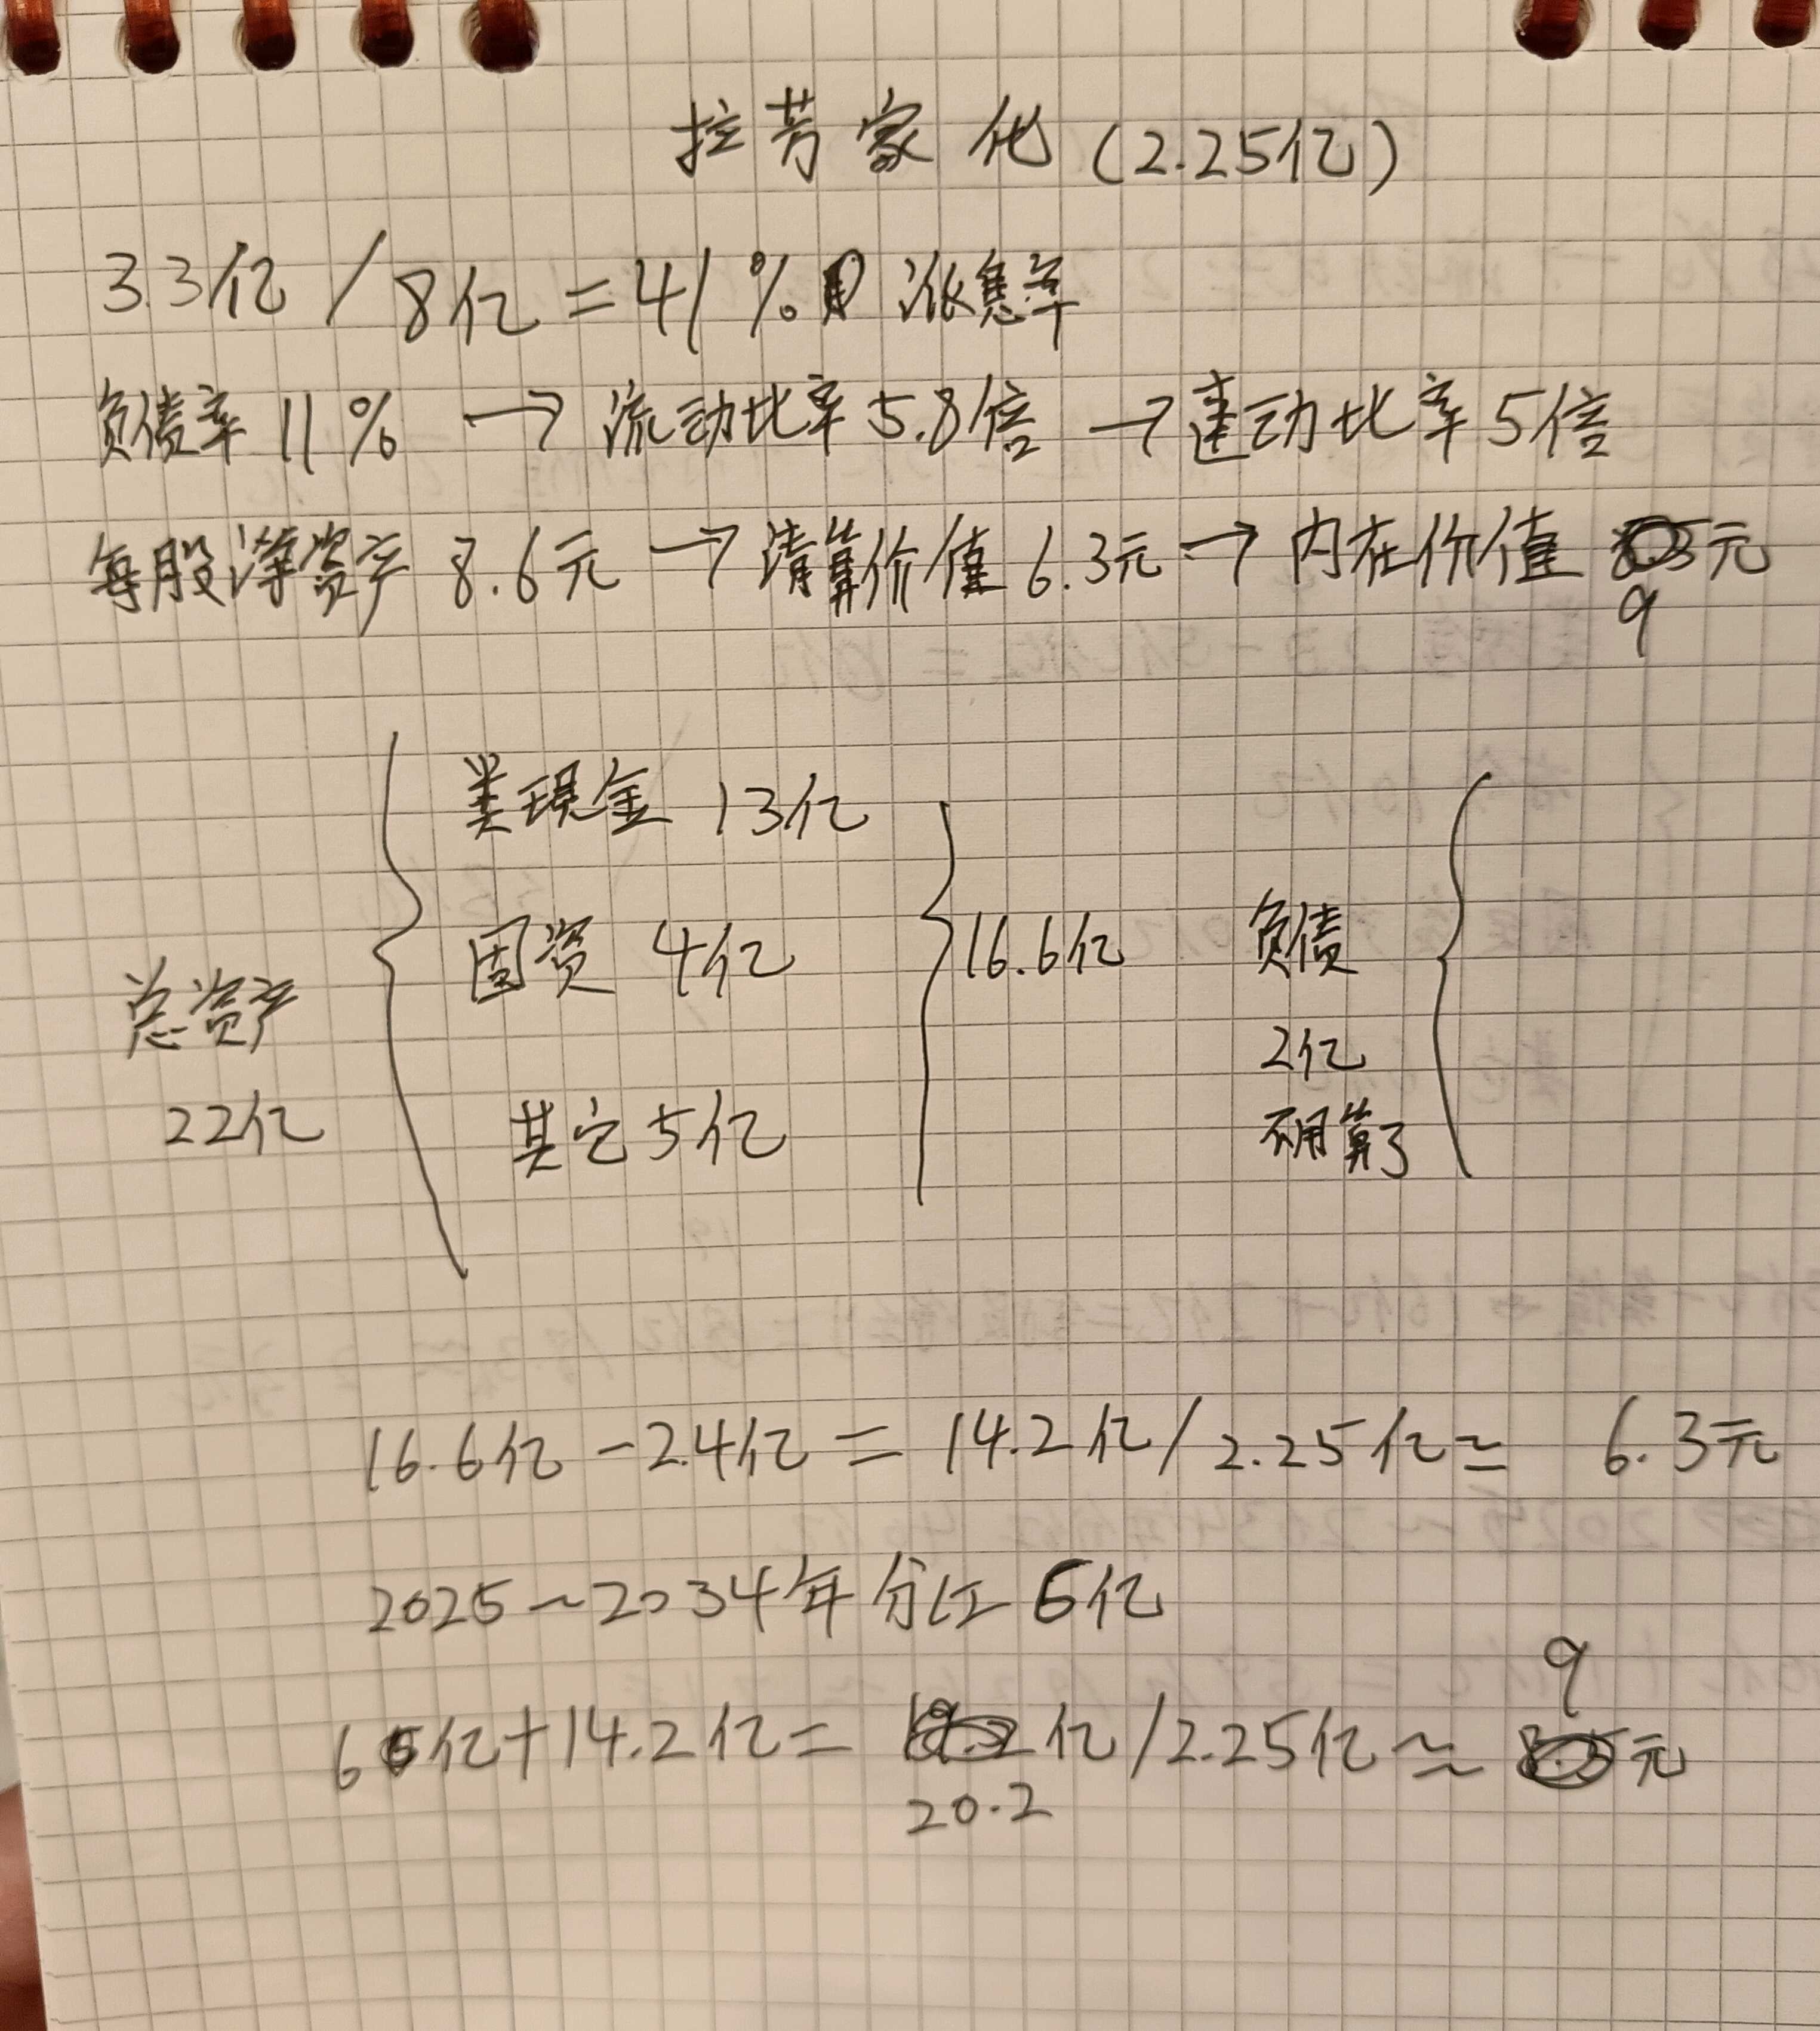 拉芳家化(2.25亿)
3.3亿/8亿=41% 派息率
负债率11% → 流动比率5.8倍 → 速动比率5倍
每股净资产8.6元 → 清算价值6.3元 → 内在价值 9元
类现金 13亿
固资 4亿
16.6亿
负债
总资产
2亿
22亿
其它5亿
不用算了
16.6亿-2.4亿=14.2亿/2.25亿≈ 6.3元
2025~2034年分红6亿
6亿+14.2亿= 20.2亿/2.25亿≈ 9元